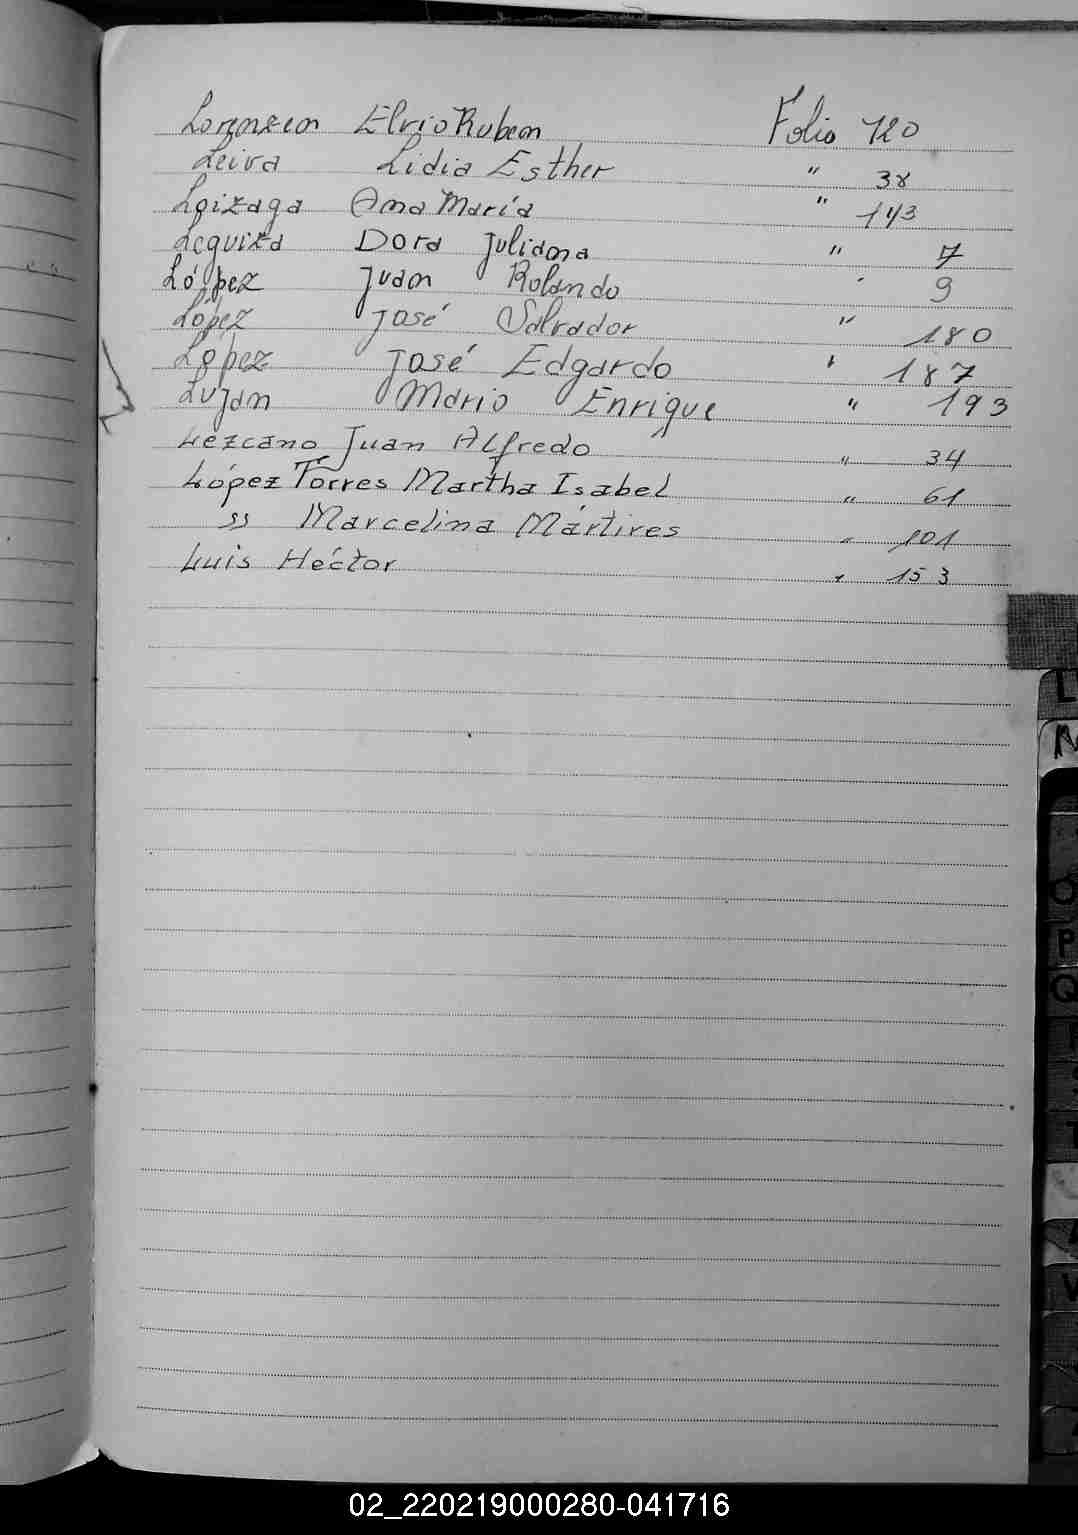 Lorenzen Elvio Ruben Folio 120
Leiva Lidia Esther " 38
Loizaga Ana María " 143
Leguiza Dora Juliana " 7
López Juan Rolando " 9
López José Salvador " 180
López José Edgardo " 187
Lujan Mario Enrique " 193
Lezcano Juan Alfredo " 34
López Torres Martha Isabel " 61
" Marcelina Mártires " 101
Luis Héctor " 153
L
M
O
P
Q
T
V
02_220219000280-041716